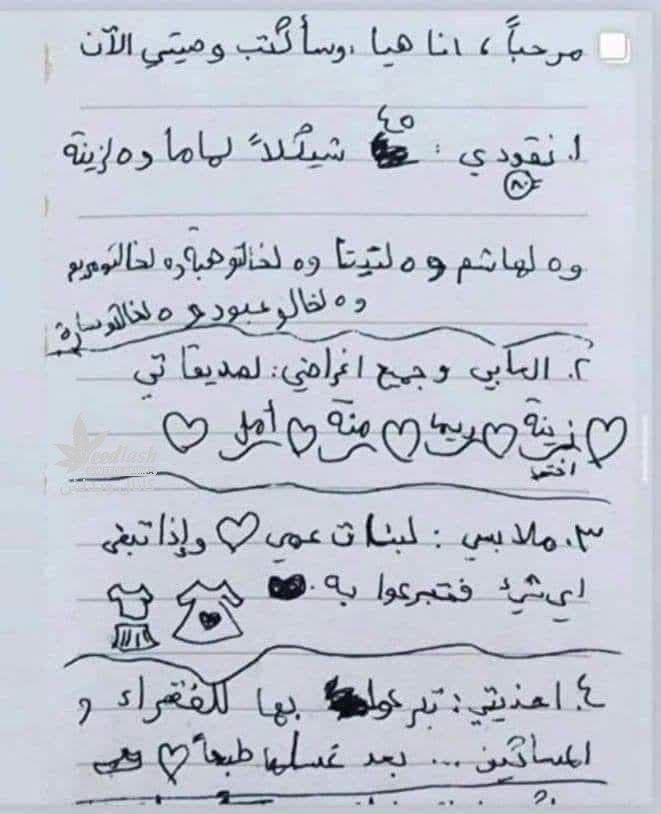 مرحباً، انا هيا وسأكتب وصيتي الآن
١. نقودي: ٤٥ شيكلاً لماما و٥ لزينة
٨٠
و٥ لهاشم و٥ لتيتا و٥ لخالتو هبة و٥ لخالتو مريم
و٥ لخالو عبود و٥ لخالتو سارة
٢. العابي وجميع اغراضي: لصديقاتي
زينة ريما منة أمل
اختي
٣. ملابسي: لبنات عمي وإذا تبقى
اي شيء فتبرعوا به.
٤. احذيتي: تبرعوا بها للفقراء و
المساكين ... بعد غسلها طبعاً